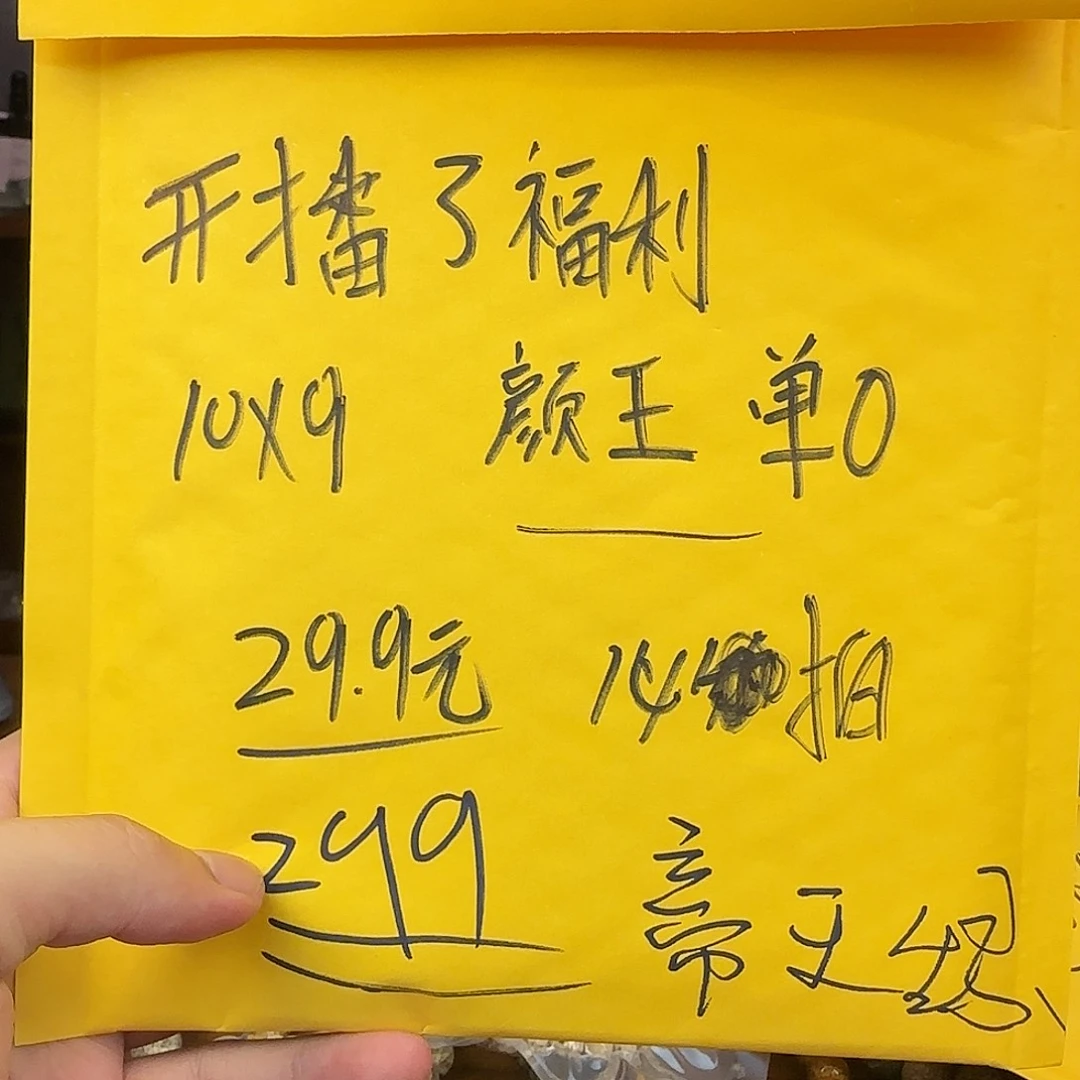 开播了福利
10X9 颜王 单0
29.9元 14 拍
299 帝王绿